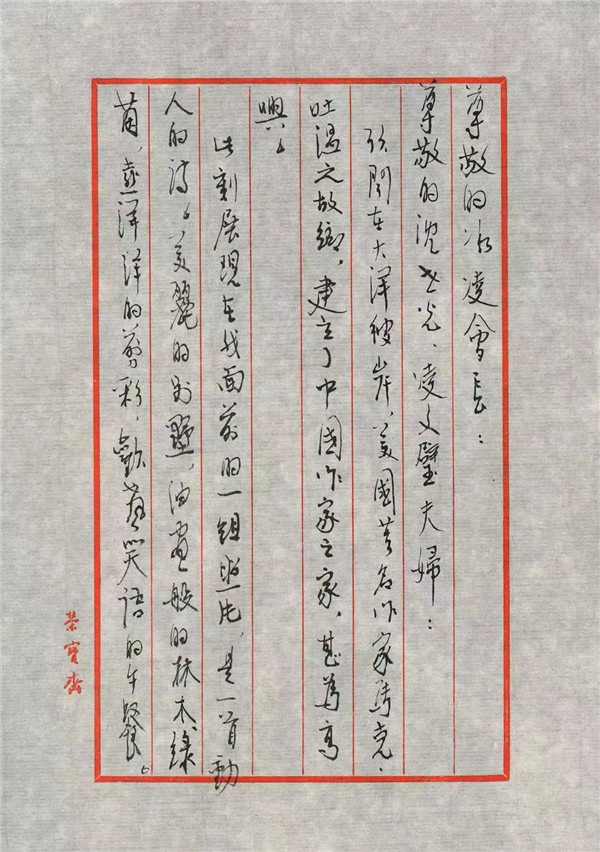 尊敬的冰凌會長：
尊敬的沈世光、凌文璧夫婦：
欣聞在大洋彼岸，美國著名作家馬克·
吐溫之故鄉，建立了中國作家之家，甚為高
興。
此刻展現在我面前的一組照片，是一首動
人的詩。美麗的別墅，油畫般的林木、綠
茵，喜洋洋的剪彩，歡聲笑語的午餐。
榮寶齋